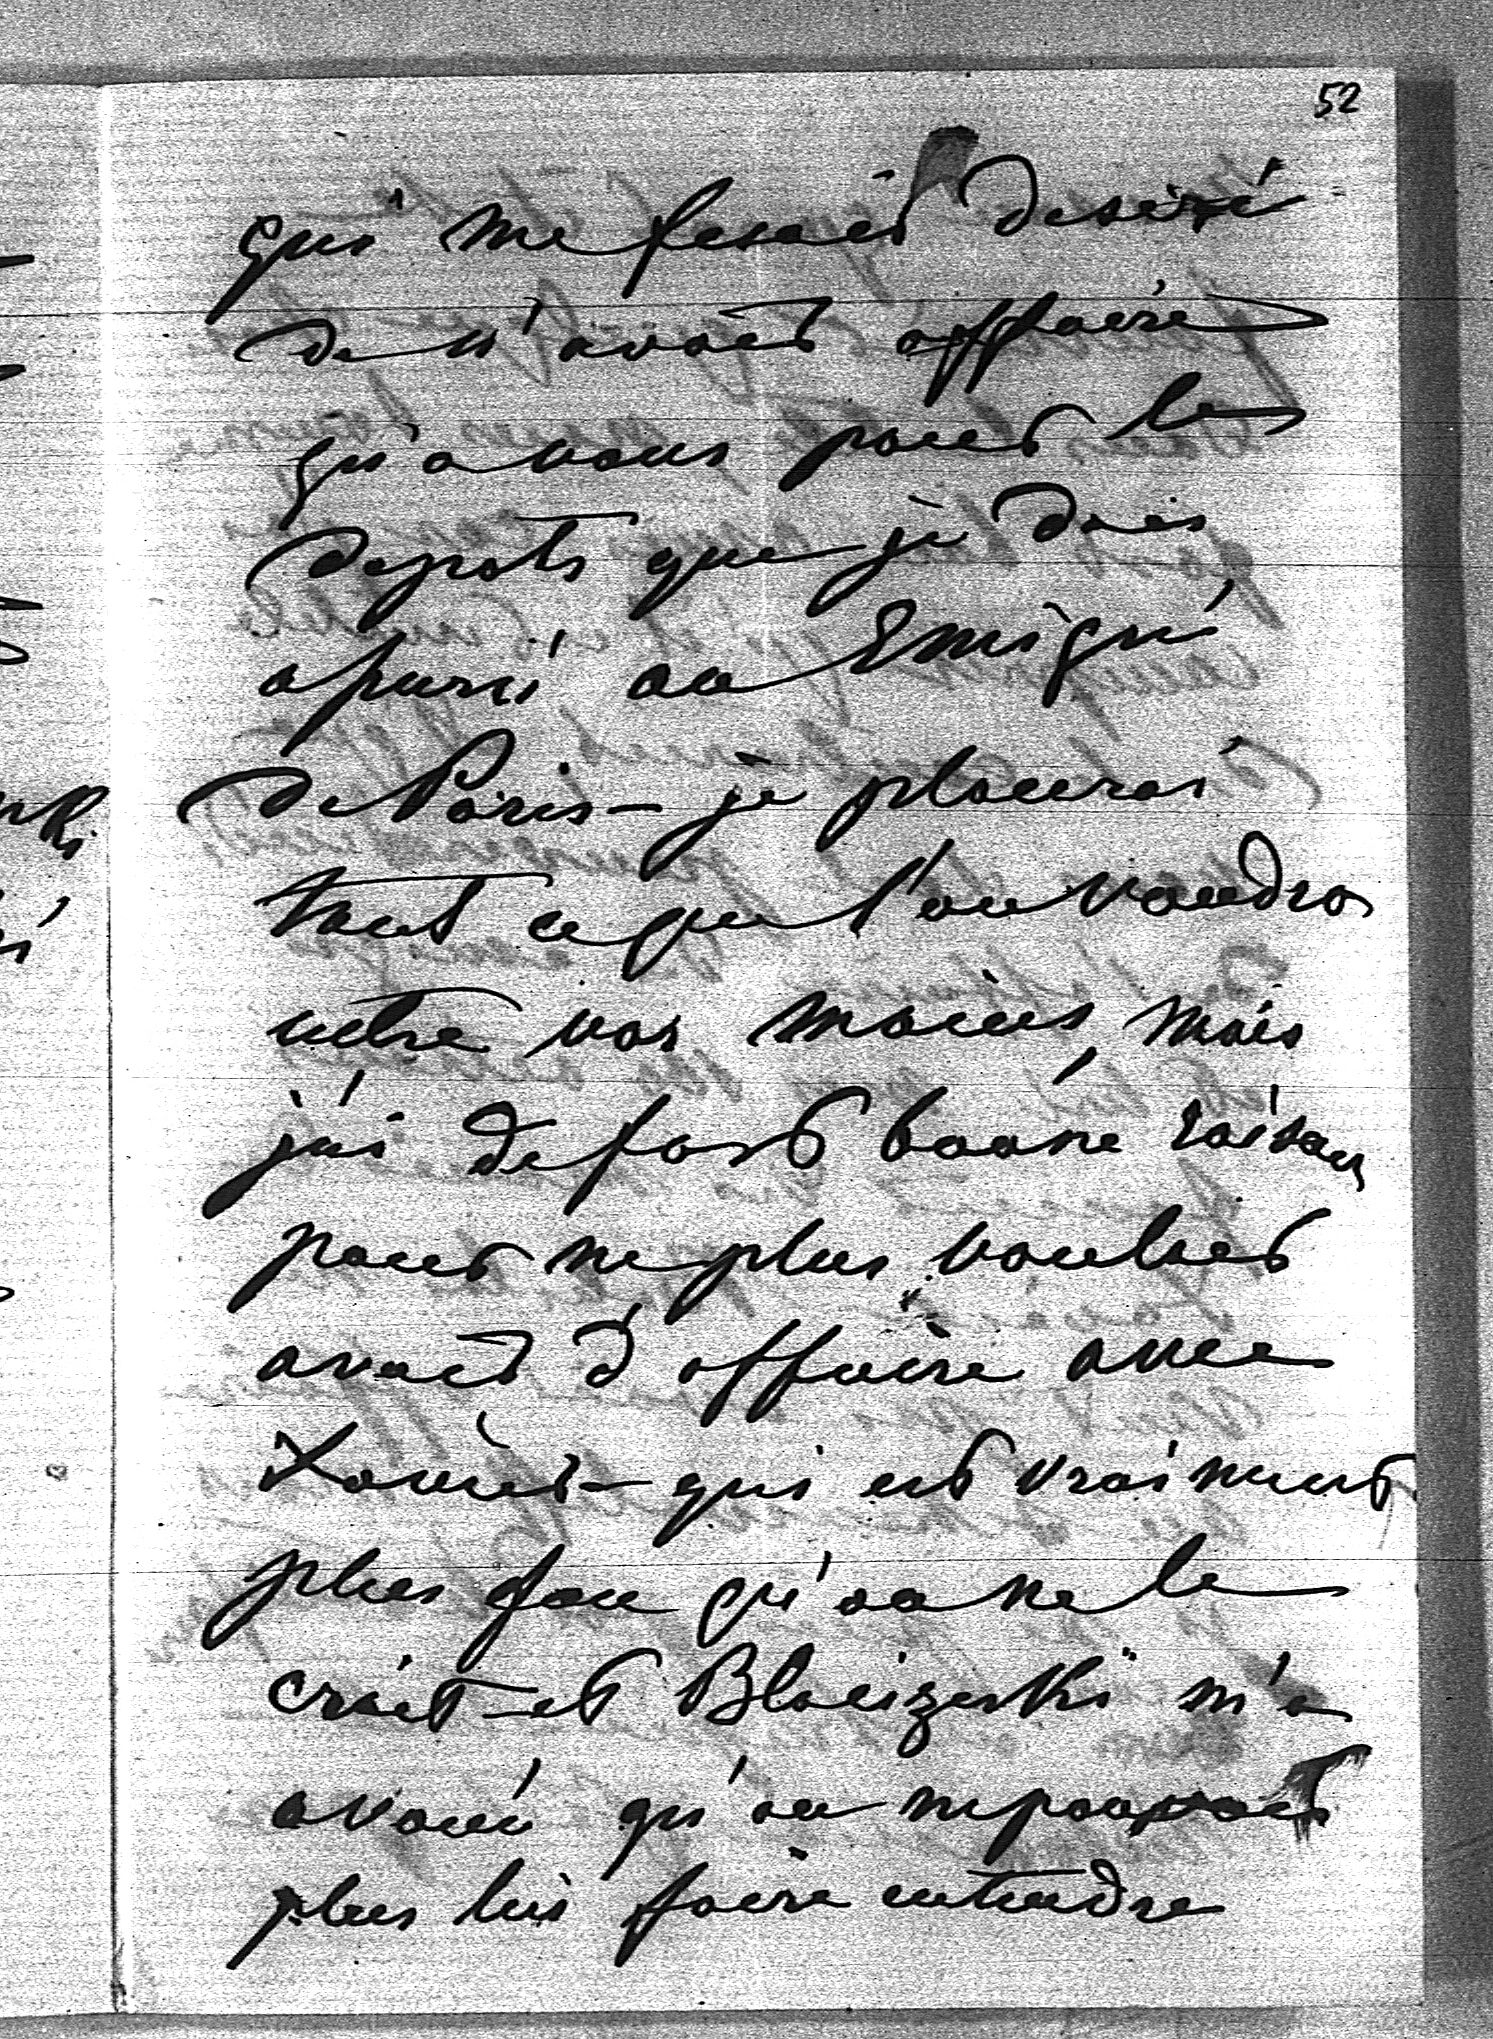 52
qui me ferait desiré
de n'avoir affaire
qu'a vous pour les
depots que je dois
apuré au Emigré
de Paris - je placeras
tout ce que l'on voudra
entre vos mains, mais
j'ai de fort bonne raison
pour ne plus vouloir
avoir d'affaire avec
Xavier - qui est vraiment
plus fou qu'on ne le
croit - et Bloeizerski m'a
avoué qu'on ne pouvoit
plus lui faire entendre